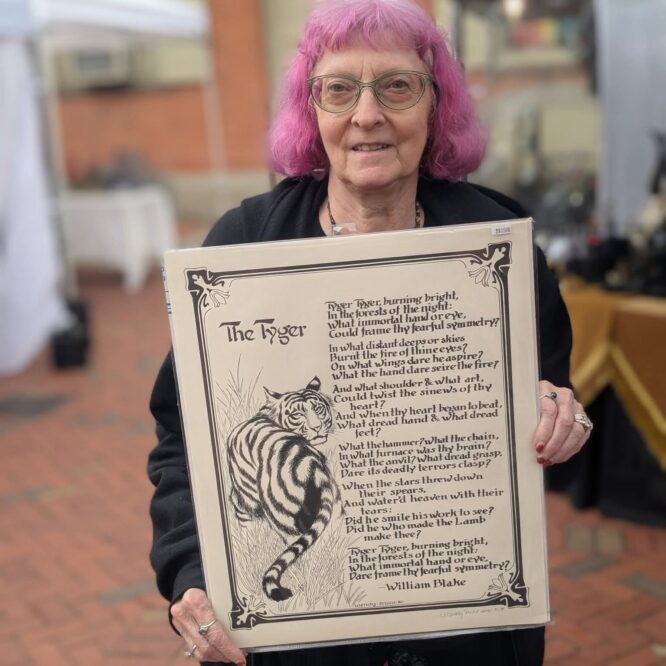 The Tyger
Tyger Tyger, burning bright,
In the forests of the night:
What immortal hand or eye,
Could frame thy fearful symmetry?
In what distant deeps or skies
Burnt the fire of thine eyes?
On what wings dare he aspire?
What the hand dare seize the fire?
And what shoulder & what art,
Could twist the sinews of thy
heart?
And when thy heart began to beat,
What dread hand & what dread
feet?
What the hammer? What the chain,
In what furnace was thy brain?
What the anvil? What dread grasp,
Dare its deadly terrors clasp?
When the stars threw down
their spears,
And water'd heaven with their
tears:
Did he smile his work to see?
Did he who made the Lamb
make thee?
Tyger Tyger, burning bright,
In the forests of the night:
What immortal hand or eye,
Dare frame thy fearful symmetry?
—William Blake